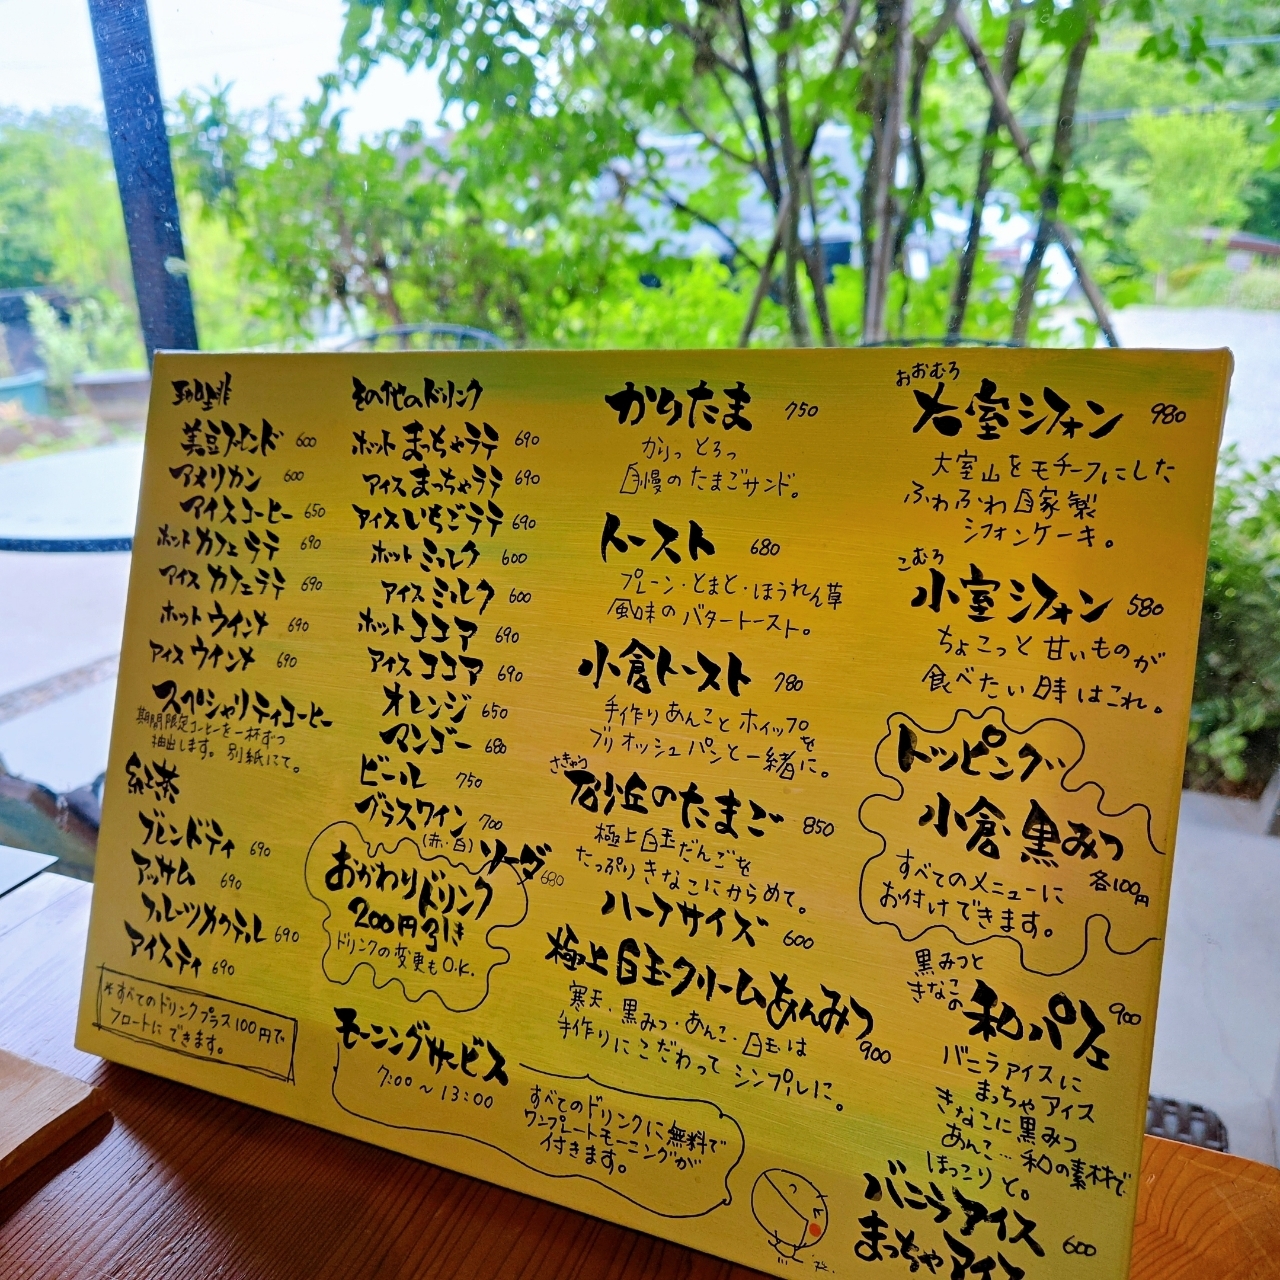 珈琲
美豆ブレンド 600
アメリカン 600
アイスコーヒー 650
ホットカフェラテ 690
アイスカフェラテ 690
ホットウインナ 690
アイスウインナ 690
スペシャリティコーヒー
期間限定コーヒーを一杯ずつ
抽出します。別紙にて。
紅茶
ブレンドティ 690
アッサム 690
フルーツカクテル 690
アイスティ 690
*すべてのドリンクプラス100円で
フロートにできます。
その他のドリンク
ホットまっちゃラテ 690
アイスまっちゃラテ 690
アイスいちごラテ 690
ホットミルク 600
アイスミルク 600
ホットココア 690
アイスココア 690
オレンジ 650
マンゴー 680
ビール 750
グラスワイン 700
(赤・白)
ソーダ 680
おかわりドリンク
200円引き
ドリンクの変更もO.K.
モーニングサービス
7:00~13:00
すべてのドリンクに無料で
ワンプレートモーニングが
付きます。
からたま 750
からっ とろっ
自慢のたまごサンド。
トースト 680
プレーン・とまと・ほうれん草
風味のバタートースト。
小倉トースト 780
手作りあんことホイップを
ブリオッシュパンと一緒に。
さきゅう
砂丘のたまご 850
極上白玉だんごを
たっぷりきなこにからめて。
ハーフサイズ 600
極上白玉クリームあんみつ 900
寒天、黒みつ・あんこ・白玉は
手作りにこだわってシンプルに。
おおむろ
大室シフォン 980
大室山をモチーフにした
ふわふわ自家製
シフォンケーキ。
こむろ
小室シフォン 580
ちょこっと甘いものが
食べたい時はこれ。
トッピング…
小倉 黒みつ
各100円
すべてのメニューに
お付けできます。
黒みつと
きなこの
和パフェ 900
バニラアイスに
まっちゃアイス
きなこに黒みつ
あんこ…和の素材で
ほっこりと。
バニラアイス
まっちゃアイス 600